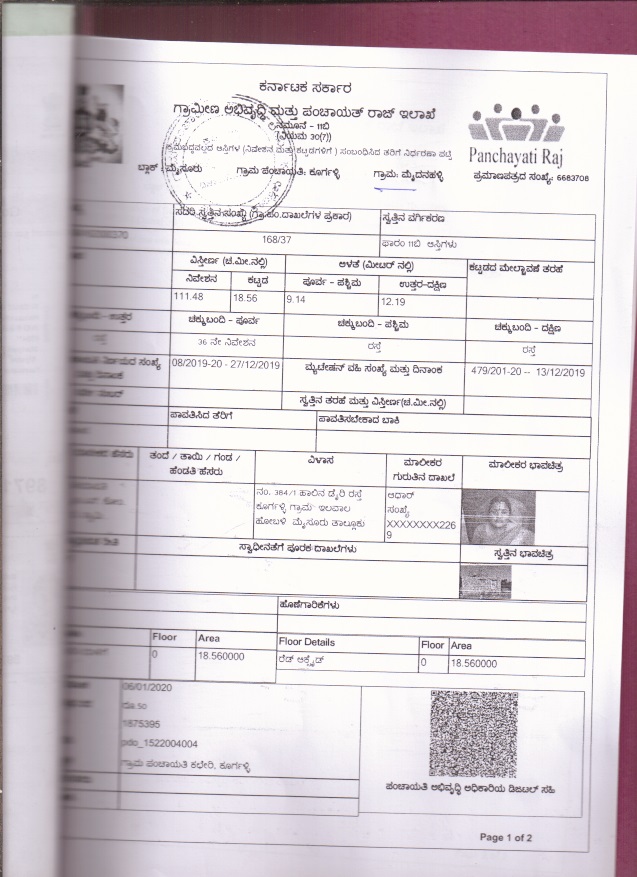 ಕರ್ನಾಟಕ ಸರ್ಕಾರ
ಗ್ರಾಮೀಣ ಅಭಿವೃದ್ಧಿ ಮತ್ತು ಪಂಚಾಯತ್ ರಾಜ್ ಇಲಾಖೆ
ನಮೂನೆ - 11ಬಿ
(ನಿಯಮ 30(7))
ಆಸ್ತಿಗಳ (ನಿವೇಶನ ಮತ್ತು ಕಟ್ಟಡಗಳಿಗೆ ) ಸಂಬಂಧಿಸಿದ ತೆರಿಗೆ ನಿರ್ಧರಣಾ ಪಟ್ಟಿ
Panchayati Raj
ಬ್ಲಾಕ್ : ಮೈಸೂರು ಗ್ರಾಮ ಪಂಚಾಯತಿ: ಕೂರ್ಗಳ್ಳಿ ಗ್ರಾಮ: ಮೈದನಹಳ್ಳಿ
ಪ್ರಮಾಣಪತ್ರದ ಸಂಖ್ಯೆ: 6683708
ಸದರಿ ಸ್ವತ್ತಿನ ಸಂಖ್ಯೆ (ಗ್ರಾ.ಪಂ.ದಾಖಲೆಗಳ ಪ್ರಕಾರ) ಸ್ವತ್ತಿನ ವರ್ಗಿಕರಣ
168/37 ಫಾರಂ 11ಬಿ ಆಸ್ತಿಗಳು
ವಿಸ್ತೀರ್ಣ (ಚ.ಮೀ.ನಲ್ಲಿ) ಅಳತೆ (ಮೀಟರ್ ನಲ್ಲಿ) ಕಟ್ಟಡದ ಮೇಲ್ಛಾವಣಿ ತರಹೆ
ನಿವೇಶನ ಕಟ್ಟಡ ಪೂರ್ವ - ಪಶ್ಚಿಮ ಉತ್ತರ-ದಕ್ಷಿಣ
111.48 18.56 9.14 12.19
ಉತ್ತರ ಚಕ್ಕುಬಂದಿ - ಪೂರ್ವ ಚಕ್ಕುಬಂದಿ - ಪಶ್ಚಿಮ ಚಕ್ಕುಬಂದಿ - ದಕ್ಷಿಣ
ರಸ್ತೆ 36 ನೇ ನಿವೇಶನ ರಸ್ತೆ ರಸ್ತೆ
ಸಂಖ್ಯೆ 08/2019-20 - 27/12/2019 ಮ್ಯುಟೇಷನ್ ವಹಿ ಸಂಖ್ಯೆ ಮತ್ತು ದಿನಾಂಕ 479/201-20 -- 13/12/2019
ಸ್ವತ್ತಿನ ತರಹೆ ಮತ್ತು ವಿಸ್ತೀರ್ಣ(ಚ.ಮೀ.ನಲ್ಲಿ)
ಪಾವತಿಸಿದ ತೆರಿಗೆ ಪಾವತಿಸಬೇಕಾದ ಬಾಕಿ
ಹೆಸರು ತಂದೆ / ತಾಯಿ / ಗಂಡ / ವಿಳಾಸ ಮಾಲೀಕರ ಮಾಲೀಕರ ಭಾವಚಿತ್ರ
ಹೆಂಡತಿ ಹೆಸರು ಗುರುತಿನ ದಾಖಲೆ
ನಂ. 384/1 ಹಾಲಿನ ಡೈರಿ ರಸ್ತೆ ಆಧಾರ್
ಕೂರ್ಗಳ್ಳಿ ಗ್ರಾಮ ಇಲವಾಲ ಸಂಖ್ಯೆ
ಹೋಬಳಿ ಮೈಸೂರು ತಾಲ್ಲೂಕು XXXXXXXX226
9
ಸ್ವಾಧೀನತೆಗೆ ಪೂರಕ ದಾಖಲೆಗಳು ಸ್ವತ್ತಿನ ಭಾವಚಿತ್ರ
ಹೊಣೆಗಾರಿಕೆಗಳು
Floor Area Floor Details Floor Area
0 18.560000 ರೆಡ್ ಆಕ್ಸೈಡ್ 0 18.560000
06/01/2020
ರೂ.50
1875395
pdo_1522004004
ಗ್ರಾಮ ಪಂಚಾಯತಿ ಕಛೇರಿ, ಕೂರ್ಗಳ್ಳಿ
ಪಂಚಾಯತಿ ಅಭಿವೃದ್ಧಿ ಅಧಿಕಾರಿಯ ಡಿಜಿಟಲ್ ಸಹಿ
Page 1 of 2